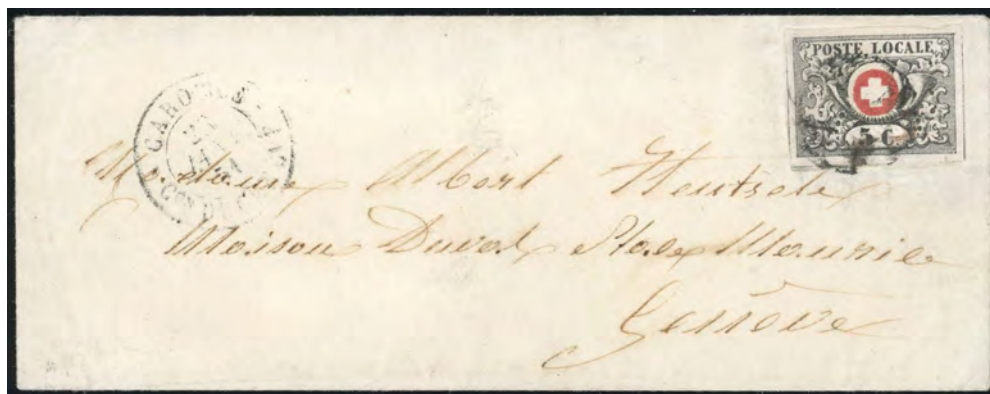 POSTE LOCALE
5 C.
CAROUGE
Madame Albert Hentsch
Maison Duval
Genève